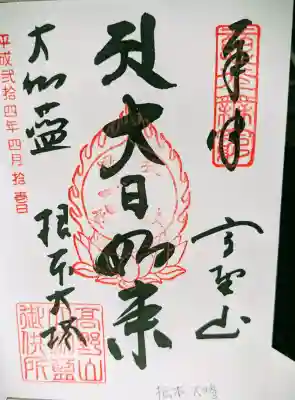 奉拝
高野山
大日如来
大伽藍
根本大塔
平成弐拾四年四月拾壹日
高野山
伽藍
御供所
根本大塔